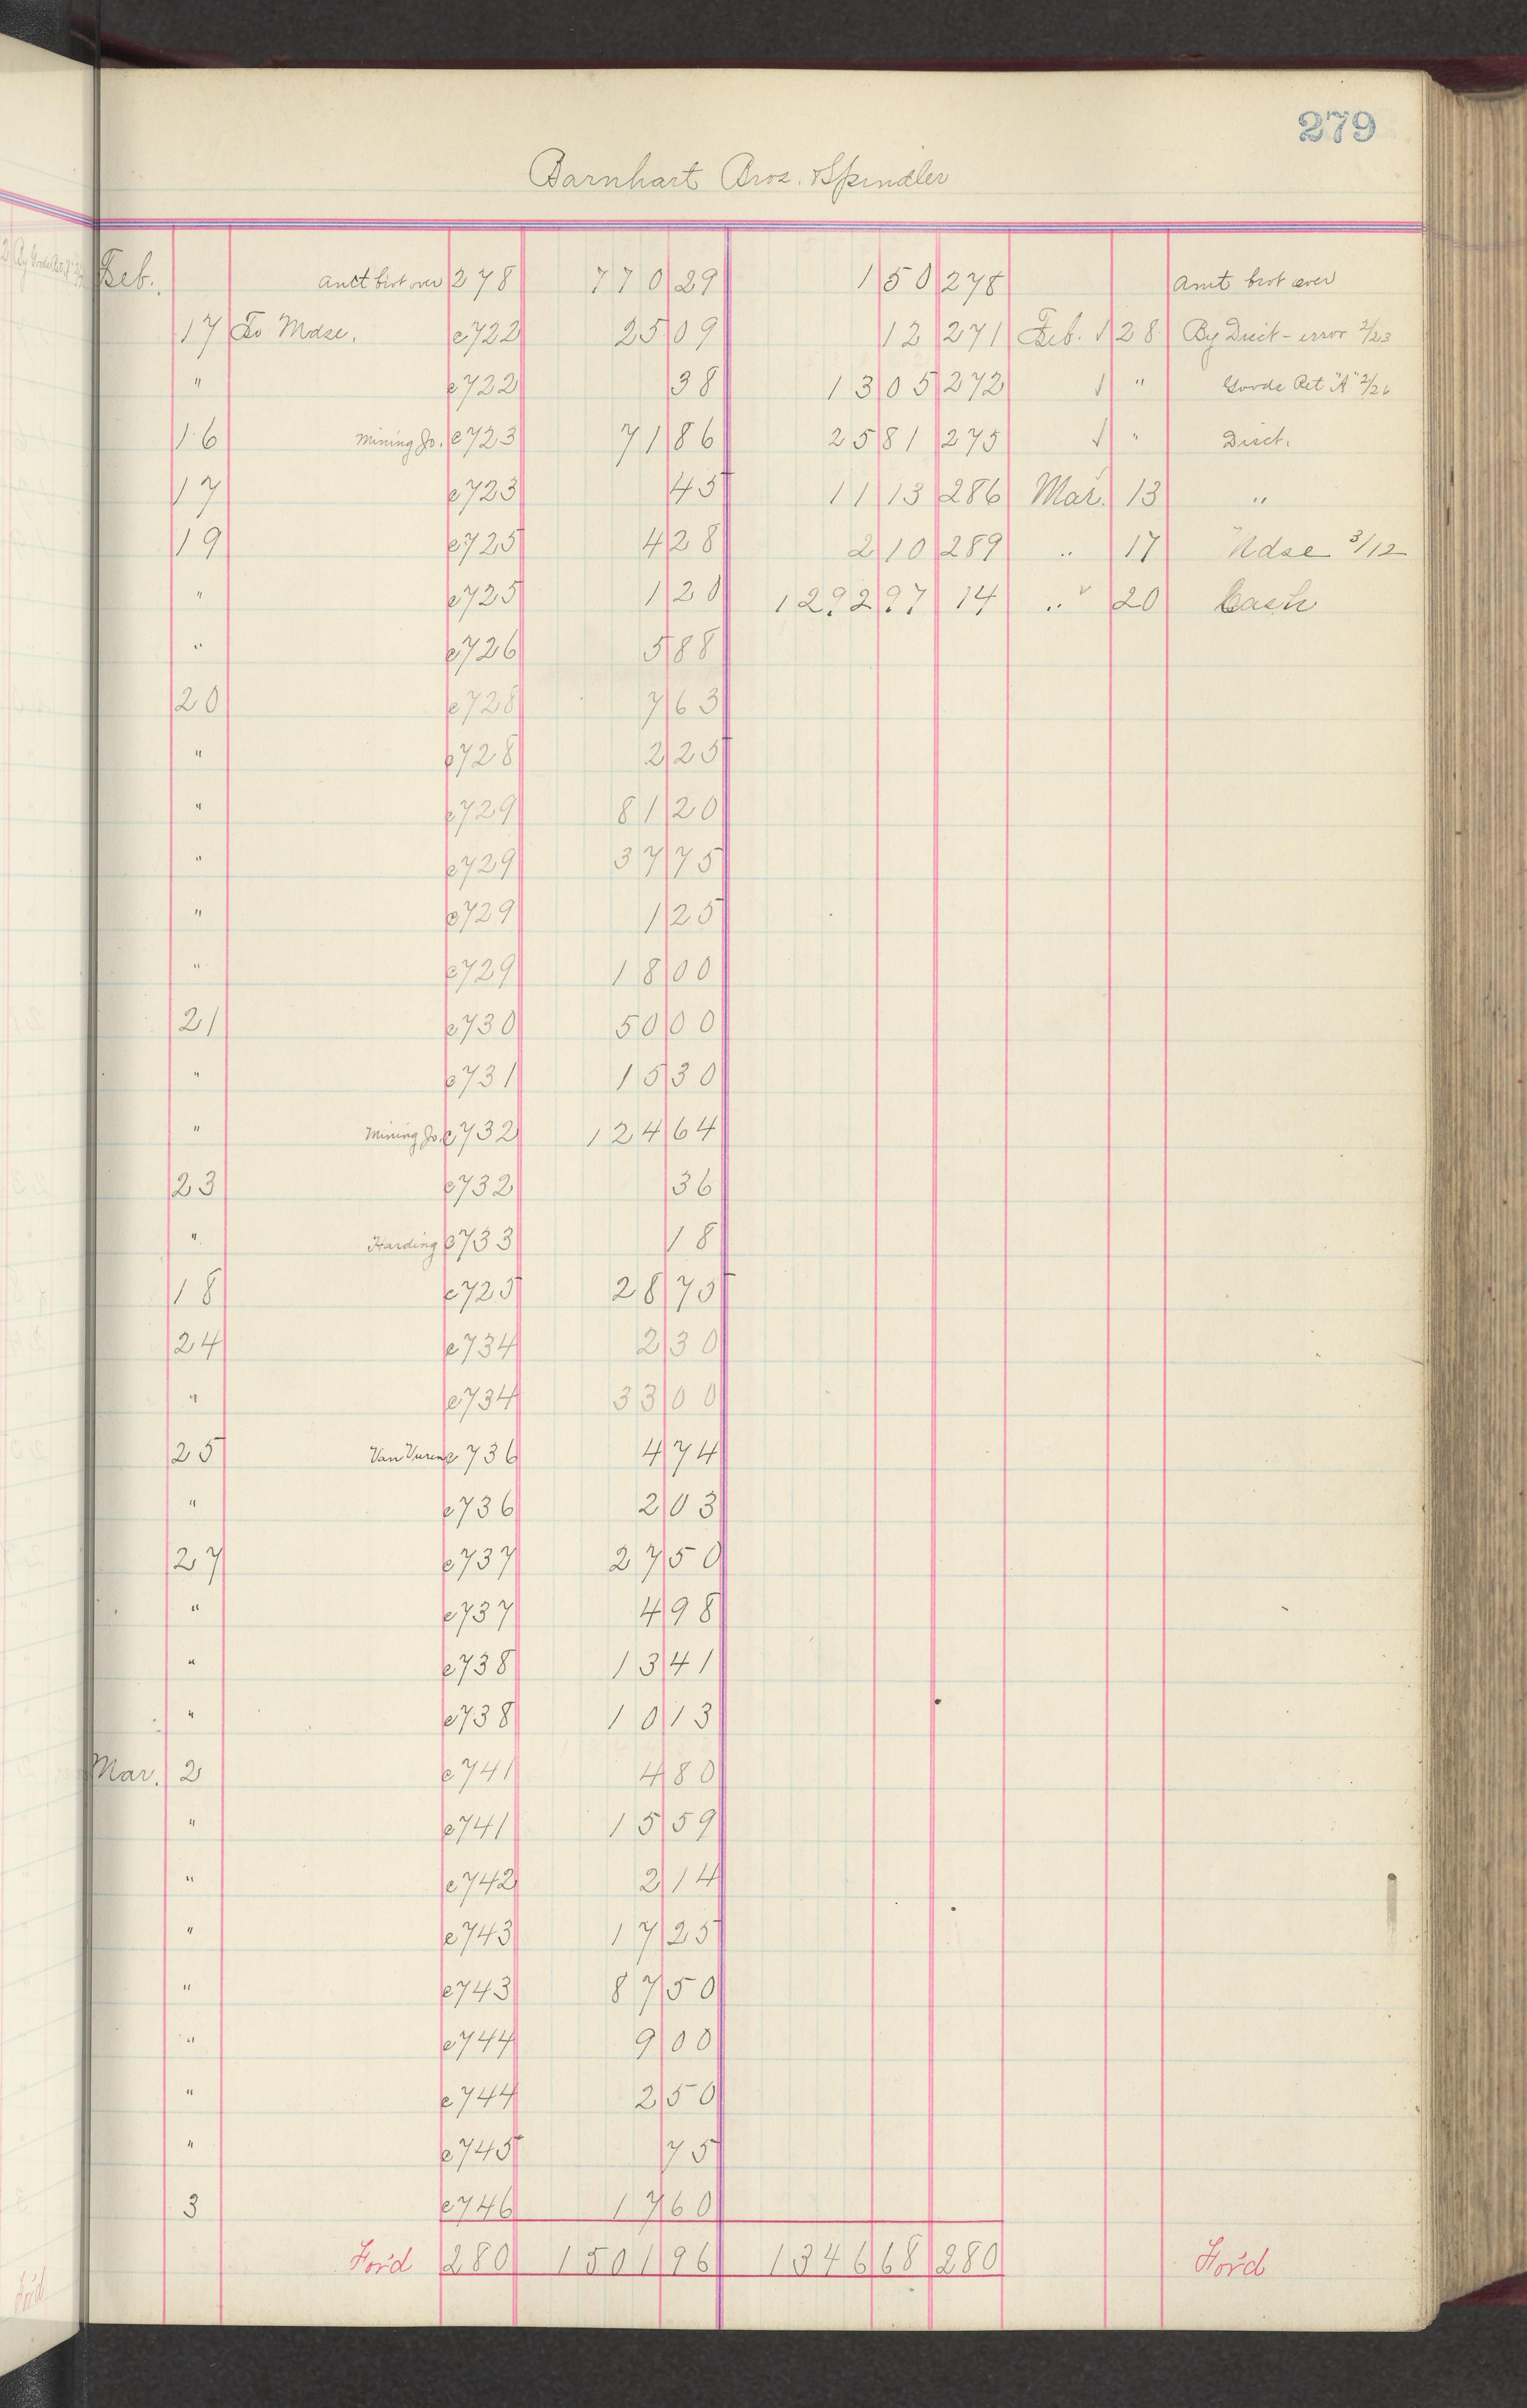 279
Barnhart Bros. & Spindler
Feb. Amt brot over 278 770 29 1 50 278 Amt brot over
17 To Mdse. c722 25 09 12 271 Feb. √ 28 By Disct - error 2/23
" c722 38 13 05 272 √ " Goods Ret "A" 2/26
16 Mining Jo. c723 71 86 25 81 275 √ " Disct.
17 c723 45 11 13 286 Mar. 13 "
19 c725 4 28 2 10 289 " 17 Mdse 3/12
" c725 1 20 1292 97 14 " √ 20 Cash
" c726 5 88
20 c728 7 63
" c728 2 25
" c729 81 20
" c729 37 75
" c729 1 25
" c729 18 00
21 c730 50 00
" c731 15 30
" Mining Jo. c732 124 64
23 c732 36
" Harding c733 18
18 c725 28 75
24 c734 2 30
" c734 33 00
25 Van Vuren c736 4 74
" c736 2 03
27 c737 27 50
" c737 4 98
" c738 13 41
" c738 10 13
Mar. 2 c741 4 80
" c741 15 59
" c742 2 14
" c743 17 25
" c743 87 50
" c744 9 00
" c744 2 50
" c745 75
3 c746 17 60
For'd 280 1501 96 1346 68 280 For'd